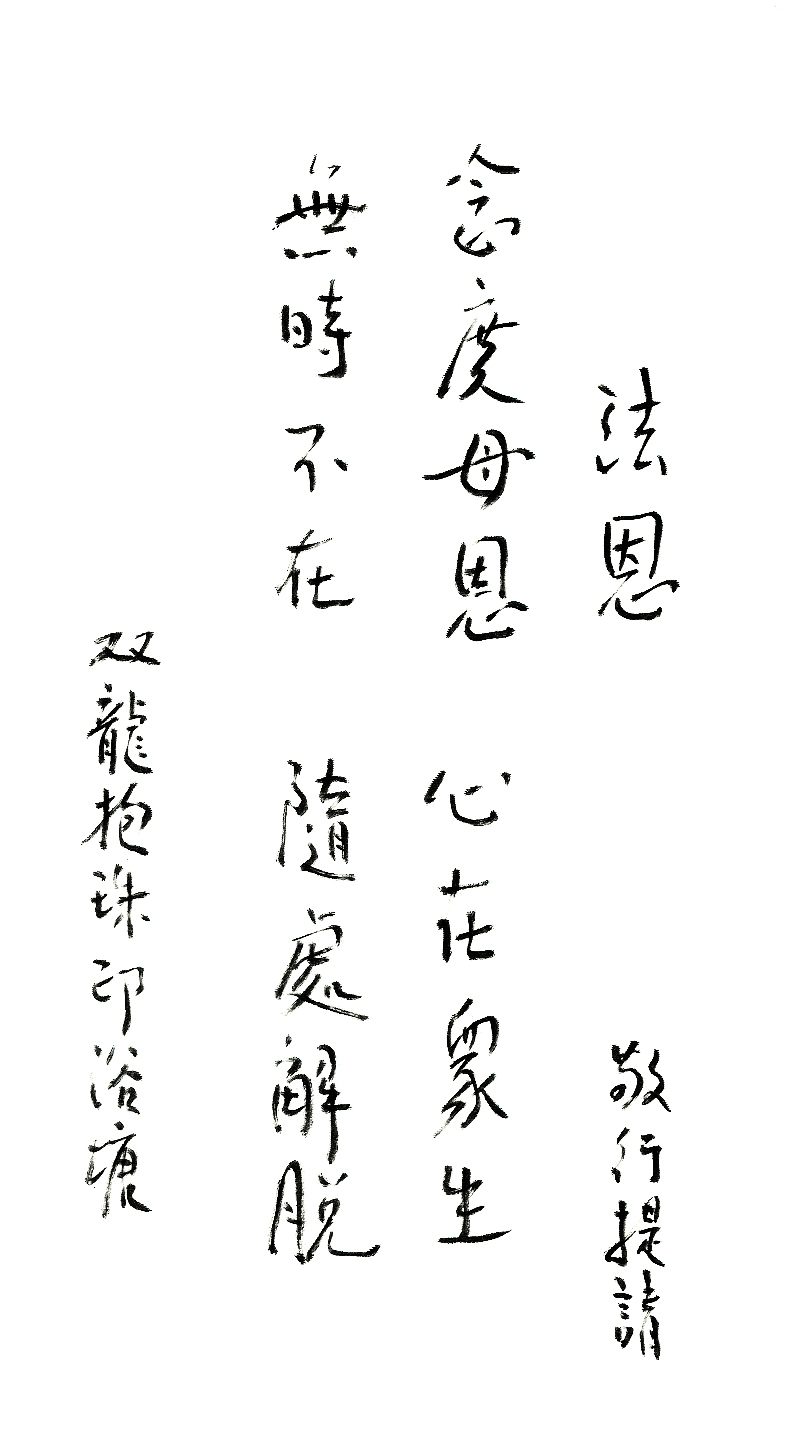 法恩 敬行提請
念度母恩 心在眾生
無時不在 隨處解脫
双龍抱珠印浴塘